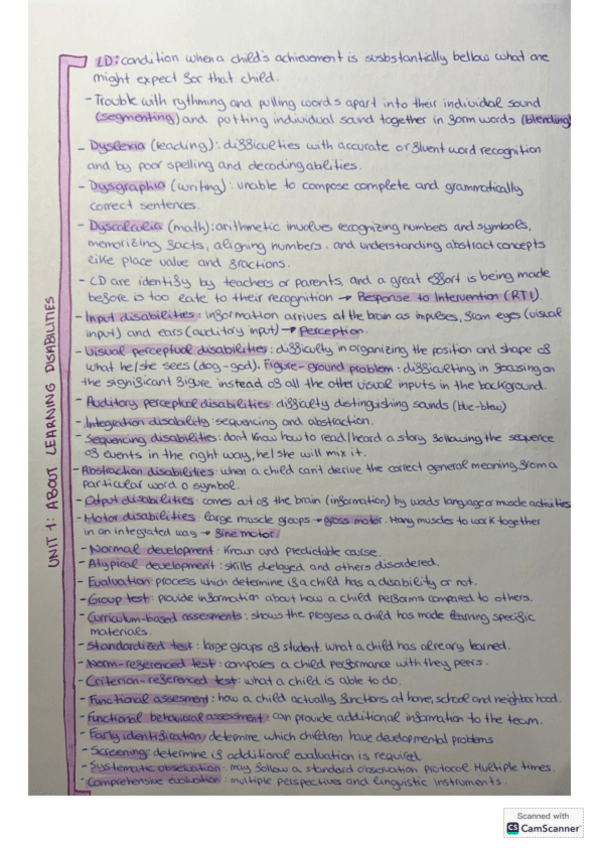 UNIT 1: ABOUT LEARNING DISABILITIES
LD: condition when a child's achievement is susbstantially bellow what one
might expect for that child.
- Trouble with rythming and pulling words apart into their individual sound
(segmenting) and putting individual sound together in form words (blending)
- Dyslexia (reading): difficulties with accurate or fluent word recognition
and by poor spelling and decoding abilities.
- Dysgraphia (writing): unable to compose complete and grammatically
correct sentences.
- Dyscalculia (math): arithmetic involves recognizing numbers and symbols,
memorizing facts, aligning numbers, and understanding abstract concepts
like place value and fractions.
- LD are identify by teachers or parents, and a great effort is being made
before is too late to their recognition → Response to Intervention (RTI).
- Input disabilities: information arrives at the brain as impulses, from eyes (visual
input) and ears (auditory input) → Perception.
- Visual perceptual disabilities: difficulty in organizing the position and shape of
what he/she sees (dog-god). Figure-ground problem: difficulting in focusing on
the significant figure instead of all the other visual inputs in the background.
- Auditory perceptual disabilities: difficulty distinguishing sounds (blue-blew)
- Integration disability: sequencing and abstraction.
- Sequencing disabilities: don't know how to read/heard a story following the sequence
of events in the right way, he/she will mix it.
- Abstraction disabilities: when a child can't derive the correct general meaning from a
particular word o symbol.
- Output disabilities: comes out of the brain (information) by words language or muscle activities
- Motor disabilities: large muscle groups → gross motor. Many muscles to work together
in an integrated way → fine motor.
- Normal development: known and predictable course.
- Atypical development: skills delayed and others disordered.
- Evaluation: process which determine if a child has a disability or not.
- Group test: provide information about how a child performs compared to others.
- Curriculum-based assesments: shows the progress a child has made learning specific
materials.
- Standardized test: large groups of student. what a child has already learned.
- Norm-referenced test: compares a child performance with they peers.
- Criterion-referenced test: what a child is able to do.
- Functional assesment: how a child actually functions at home, school and neighborhood.
- Functional behavioral assesment: can provide additional information to the team.
- Early identification: determine which children have developmental problems
- Screening: determine if additional evaluation is required
- Systematic observation: may follow a standard observation protocol Multiple times.
- Comprehensive evaluation: multiple perspectives and linguistic instruments.
Scanned with
CS CamScanner